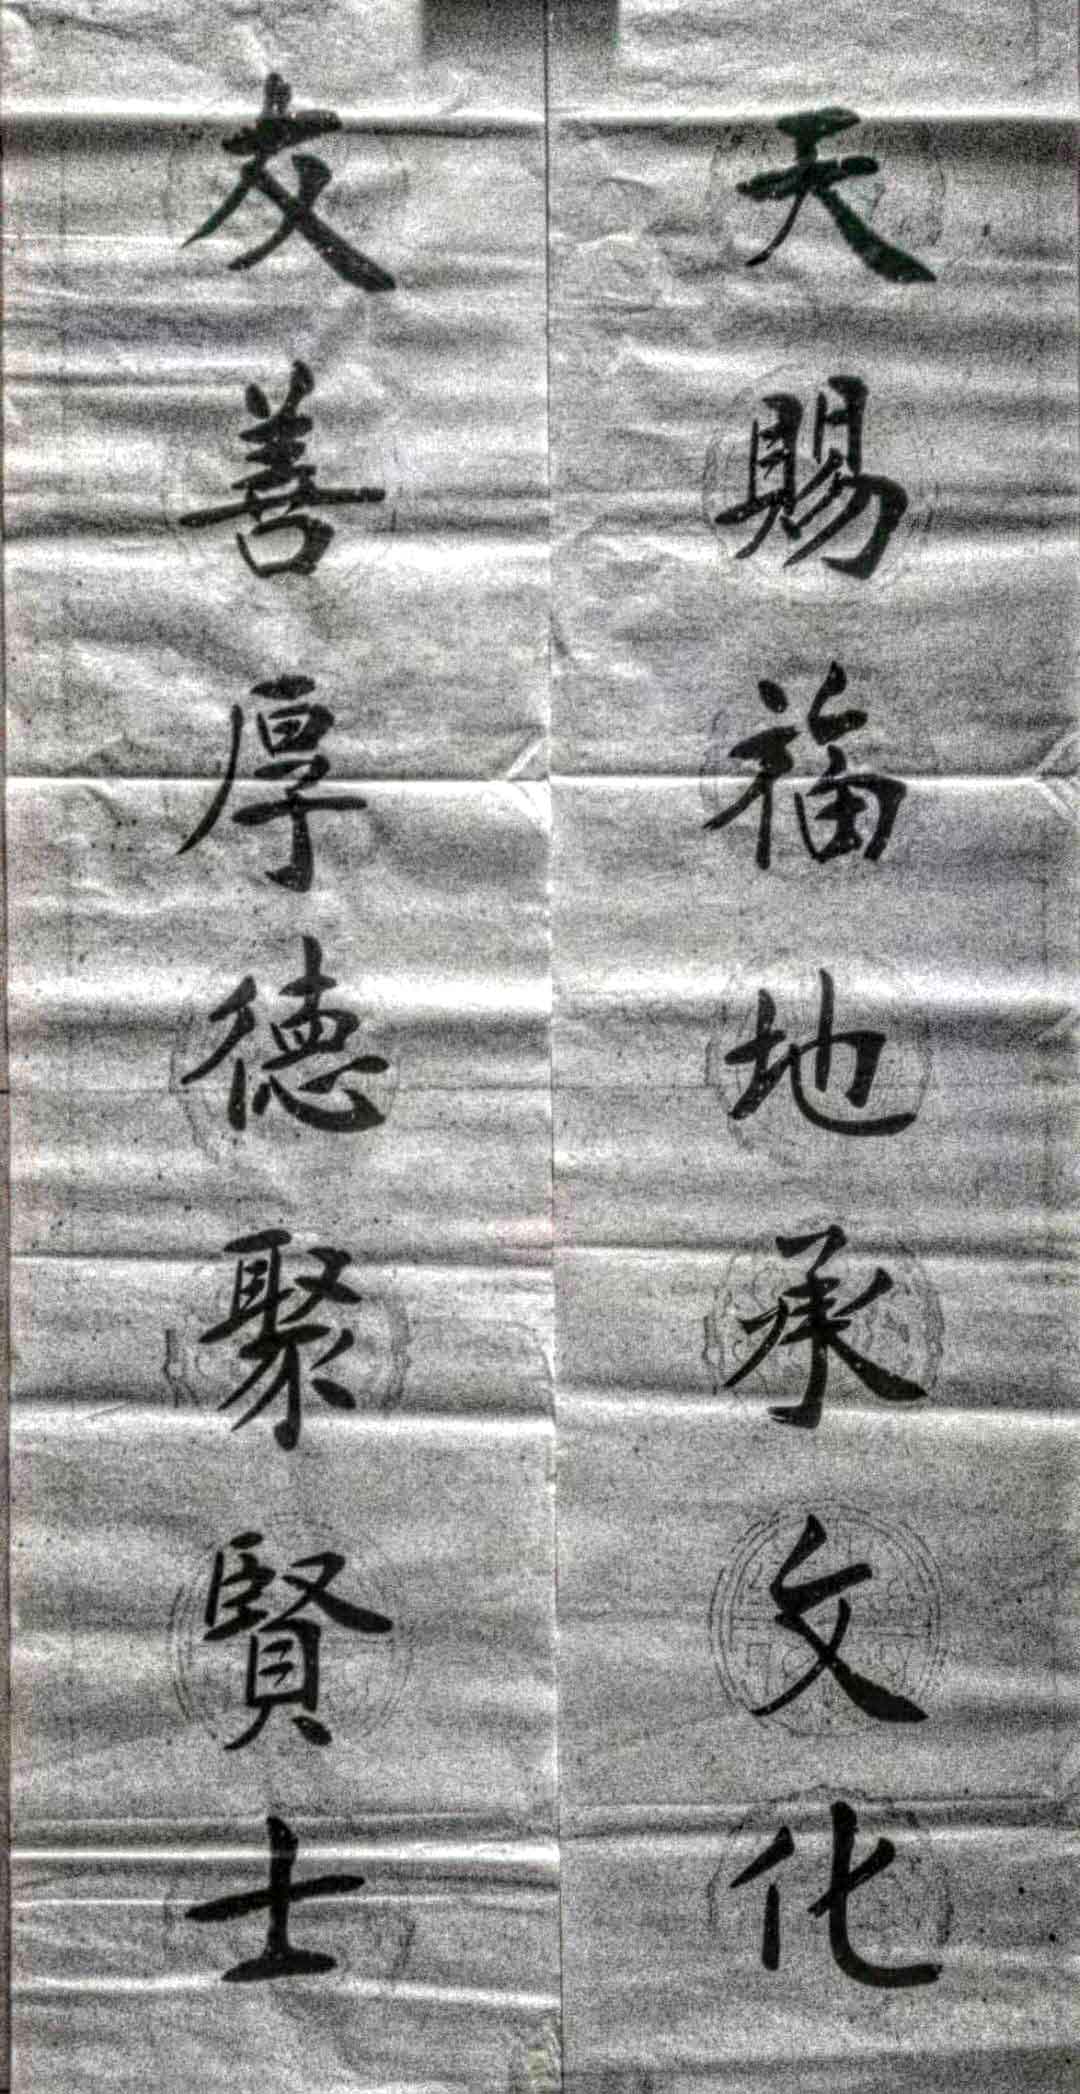 天賜福地承文化
友善厚德聚賢士